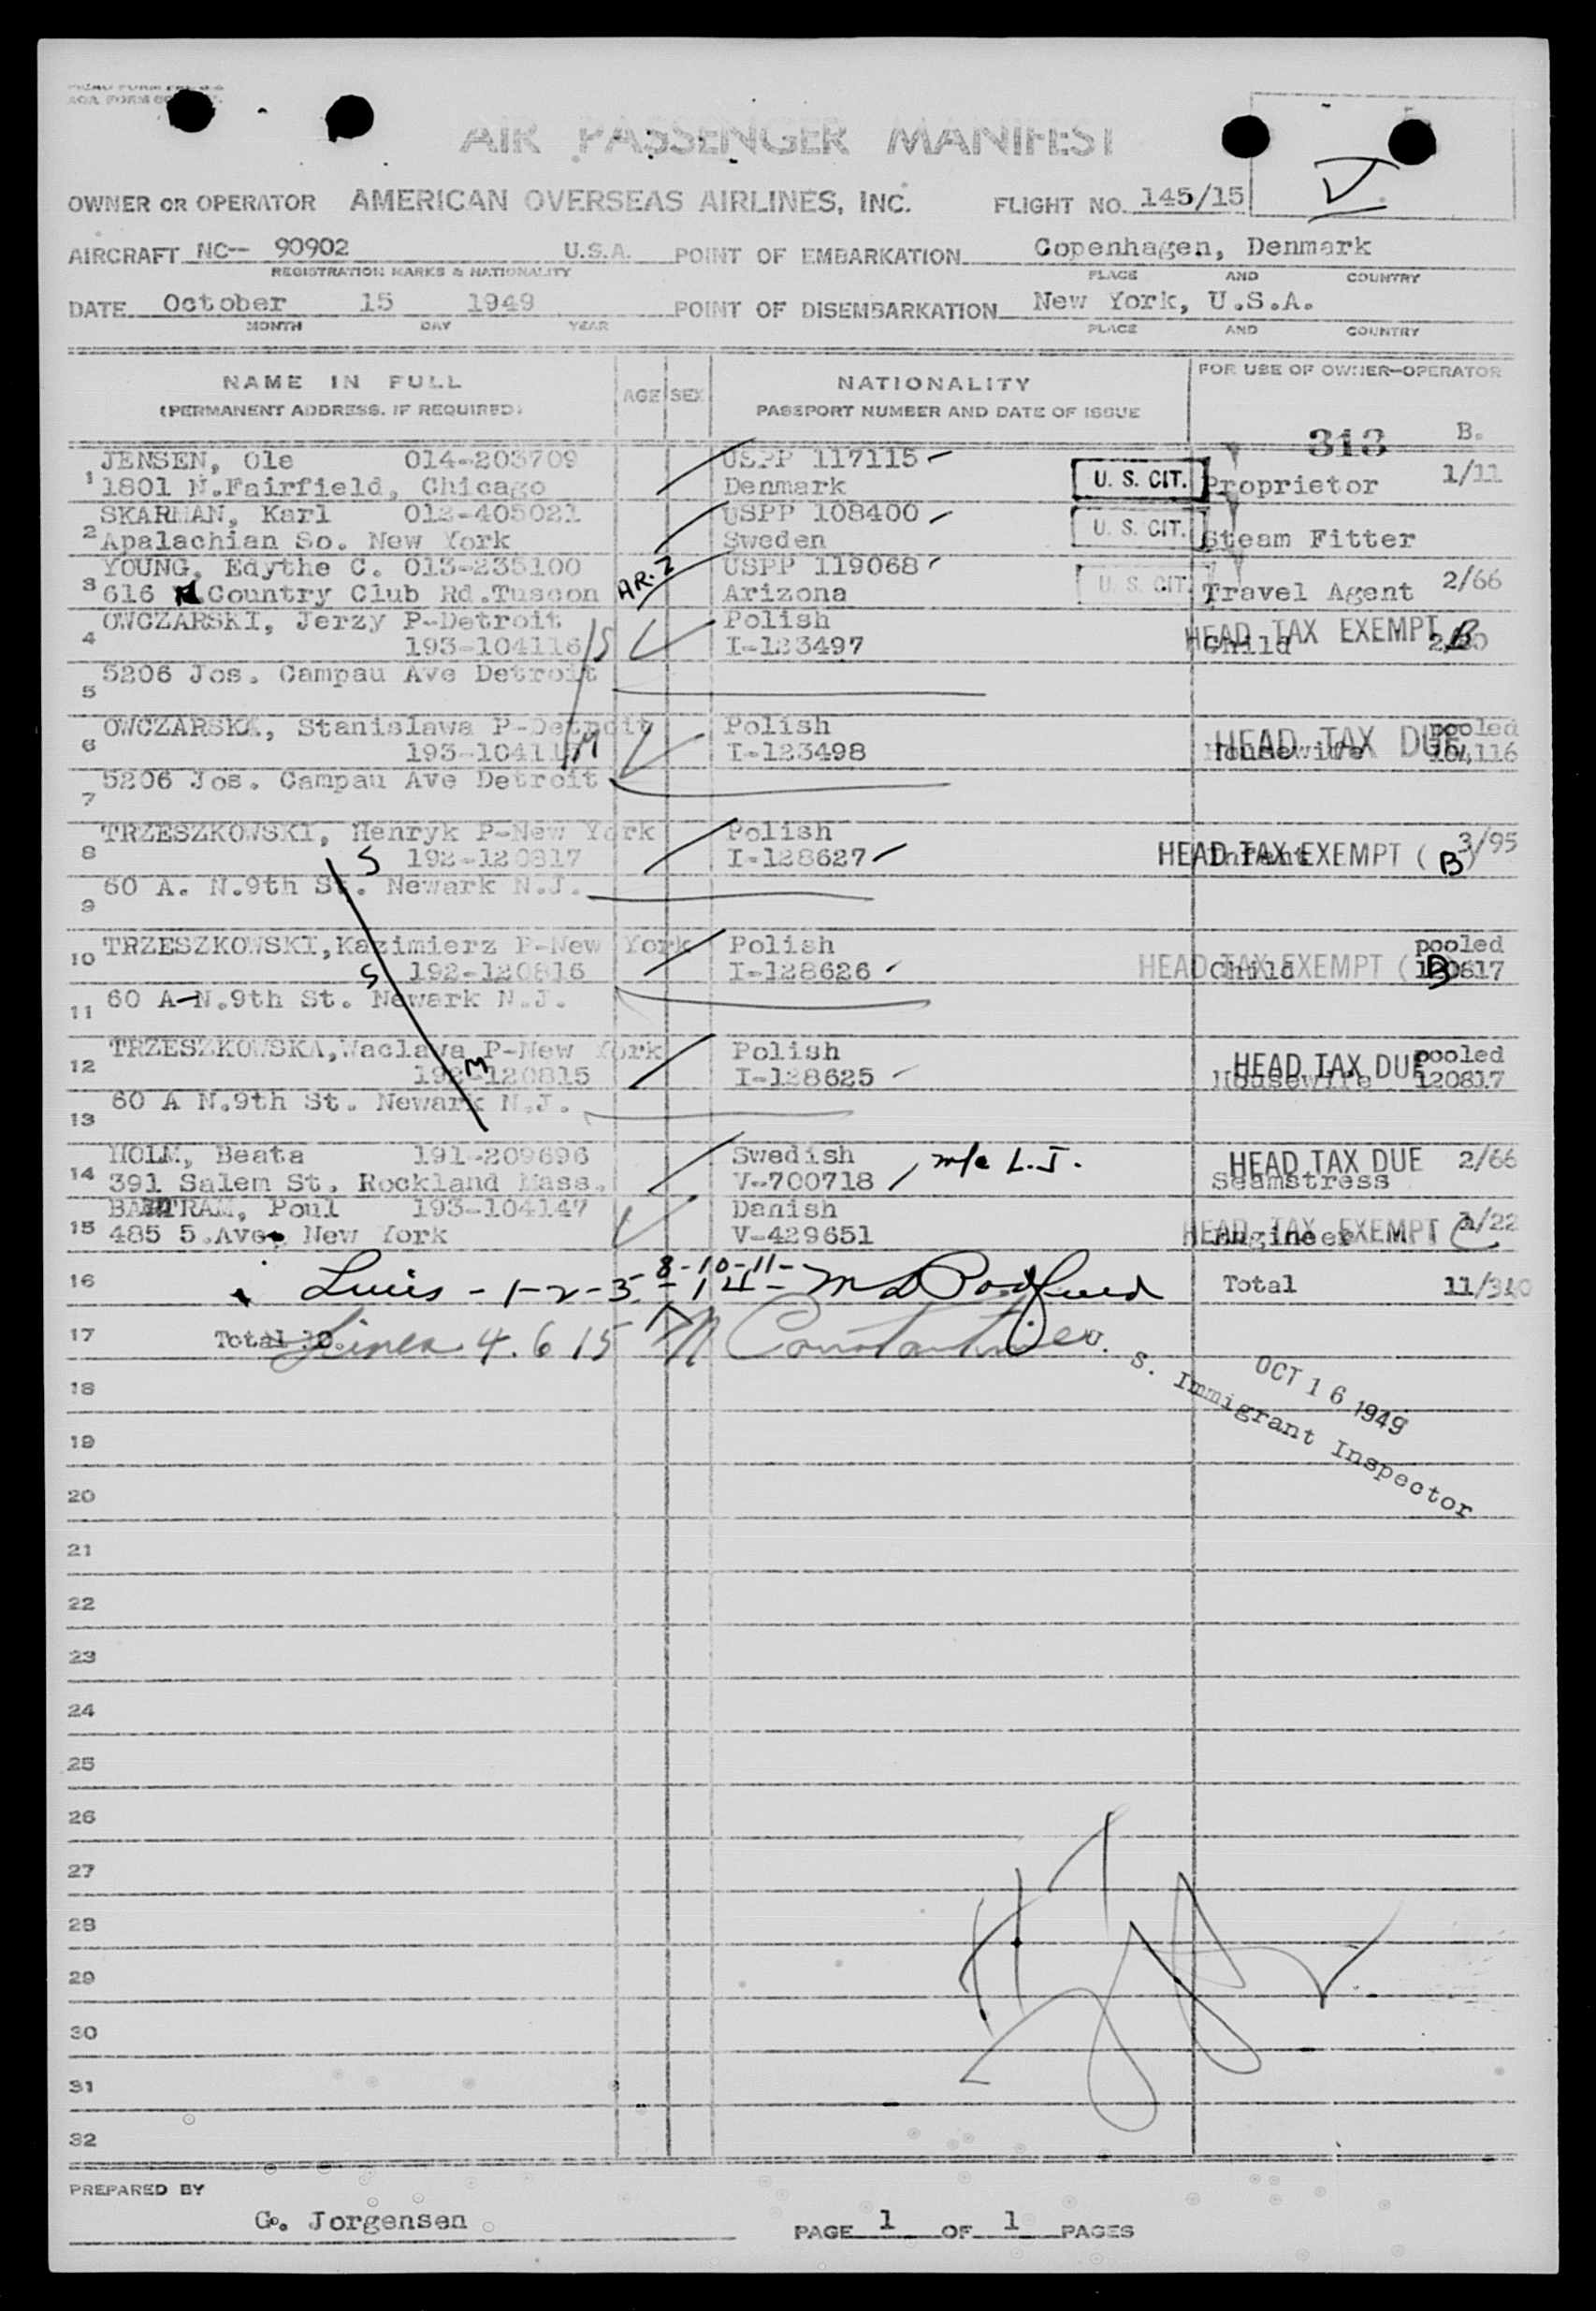 AIR PASSENGER MANIFEST
OWNER OR OPERATOR AMERICAN OVERSEAS AIRLINES, INC. FLIGHT NO. 145/15
AIRCRAFT NC-- 90902 U.S.A. POINT OF EMBARKATION Copenhagen, Denmark
REGISTRATION MARKS & NATIONALITY PLACE AND COUNTRY
DATE October 15 1949 POINT OF DISEMBARKATION New York, U.S.A.
MONTH DAY YEAR PLACE AND COUNTRY
NAME IN FULL AGE SEX NATIONALITY FOR USE OF OWNER-OPERATOR
(PERMANENT ADDRESS, IF REQUIRED) PASSPORT NUMBER AND DATE OF ISSUE
313 B.
1 JENSEN, Ole 014-203709 USPP 117115
1801 N.Fairfield, Chicago Denmark U. S. CIT. Proprietor 1/11
2 SKARMAN, Karl 012-405021 USPP 108400
Apalachian So. New York Sweden U. S. CIT. Steam Fitter
3 YOUNG, Edythe C. 013-235100 USPP 119068
616 Country Club Rd.Tuscon AR.Z Arizona U. S. CIT. Travel Agent 2/66
4 OWCZARSKI, Jerzy P-Detroit Polish HEAD TAX EXEMPT B
193-104116 S I-123497 Child
5 5206 Jos. Campau Ave Detroit
6 OWCZARSKA, Stanislawa P-Detroit Polish HEAD TAX DUE pooled
M I-123498 Housewife 104116
7 5206 Jos. Campau Ave Detroit
8 TRZESZKOWSKI, Henryk P-New York Polish
S 192-120817 I-128627 HEAD TAX EXEMPT (B) Infant 3/95
9 60 A. N.9th St. Newark N.J.
10 TRZESZKOWSKI,Kazimierz P-New York Polish pooled
S 192-120816 I-128626 HEAD TAX EXEMPT (B Child 120817
11 60 A-N.9th St. Newark N.J.
12 TRZESZKOWSKA,Waclawa P-New York Polish HEAD TAX DUE pooled
M 192-120815 I-128625 Housewife 120817
13 60 A N.9th St. Newark N.J.
14 HOLM, Beata 191-209696 Swedish m/a L.J. HEAD TAX DUE 2/66
391 Salem St. Rockland Mass. V-700718 Seamstress
15 Poul 193-104147 Danish HEAD TAX EXEMPT
485 5.Ave. New York V-429651 Engineer 1/22
16 Lines - 1-2-3- 8-10-11- 14 - Total
17 Total 10. Lines 4. 6 15
18 U. S. Immigrant Inspector OCT 16 1949
19
20
21
22
23
24
25
26
27
28
29
30
31
32
PREPARED BY
G. Jorgensen PAGE 1 OF 1 PAGES